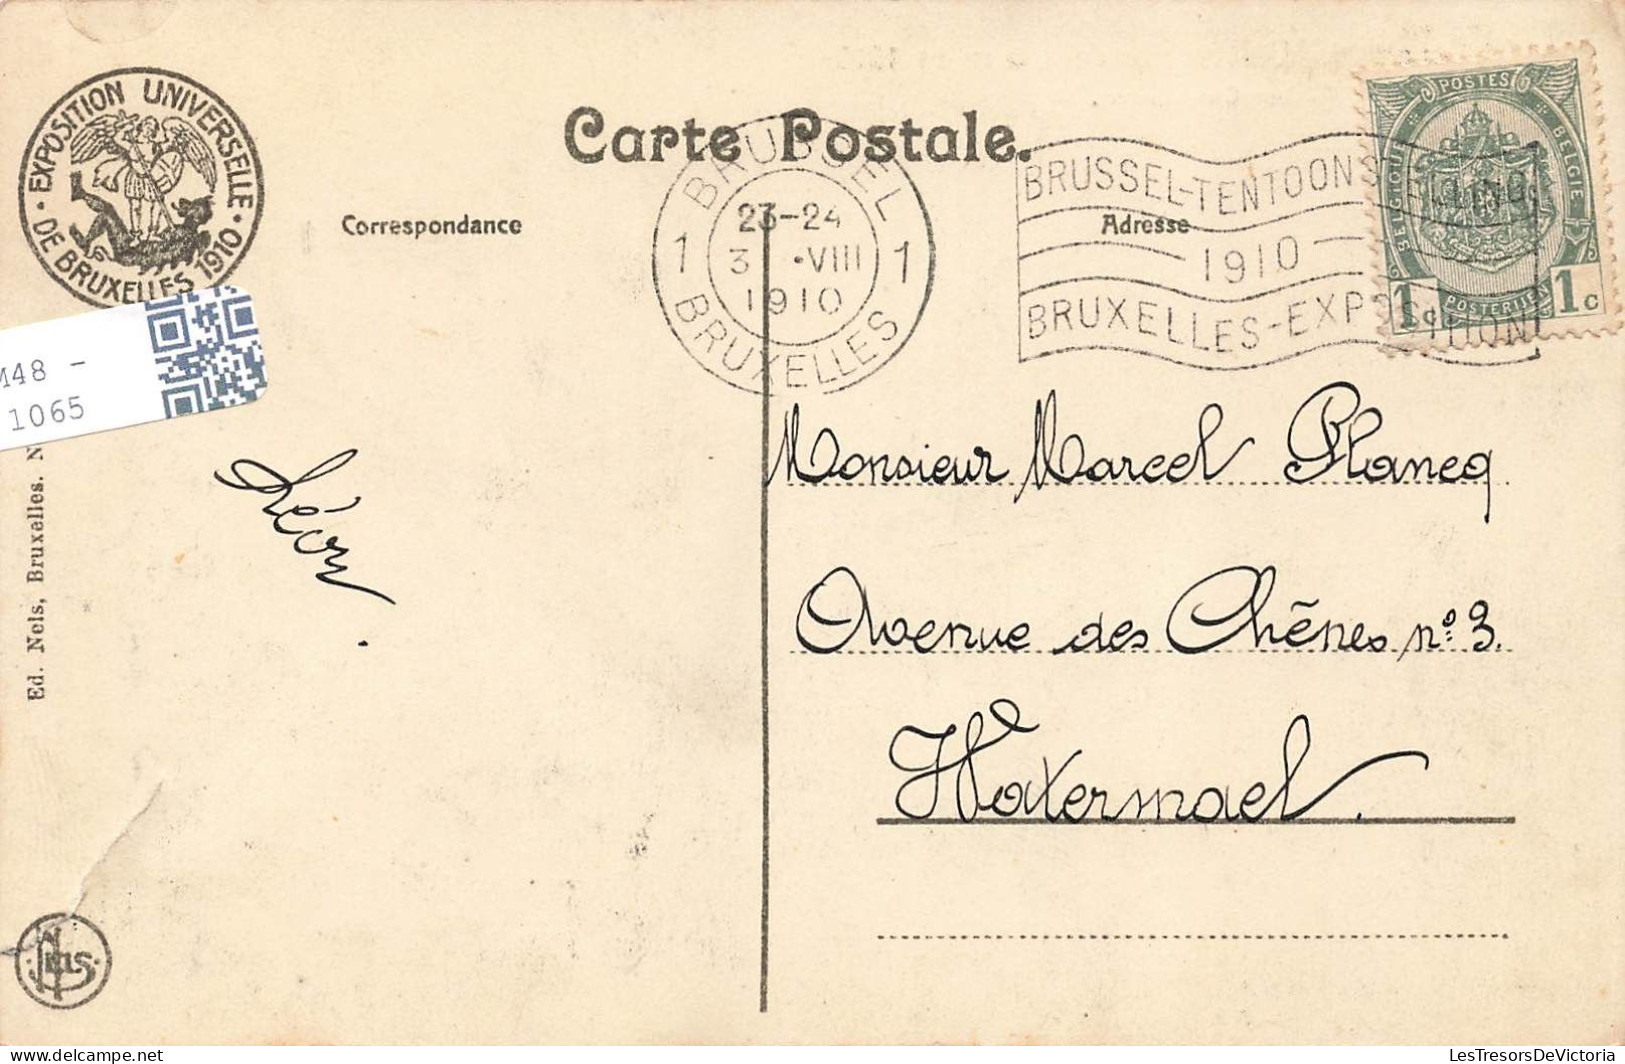 EXPOSITION UNIVERSELLE
DE BRUXELLES 1910
Carte Postale.
Correspondance
Adresse
BRUSSEL
23-24
1 3 ·VIII 1
1910
BRUXELLES
BRUSSEL-TENTOONSTELLING
1910
BRUXELLES-EXPOSITION
POSTES
BELGIQUE
BELGIE
1c
POSTERIJEN
1c
M48 -
1065
Ed. Nels, Bruxelles. N
Léon
.
Monsieur Marcel Plancq
Avenue des Chênes nº 3.
Watermael.
Nels
LesTresorsDeVictoria